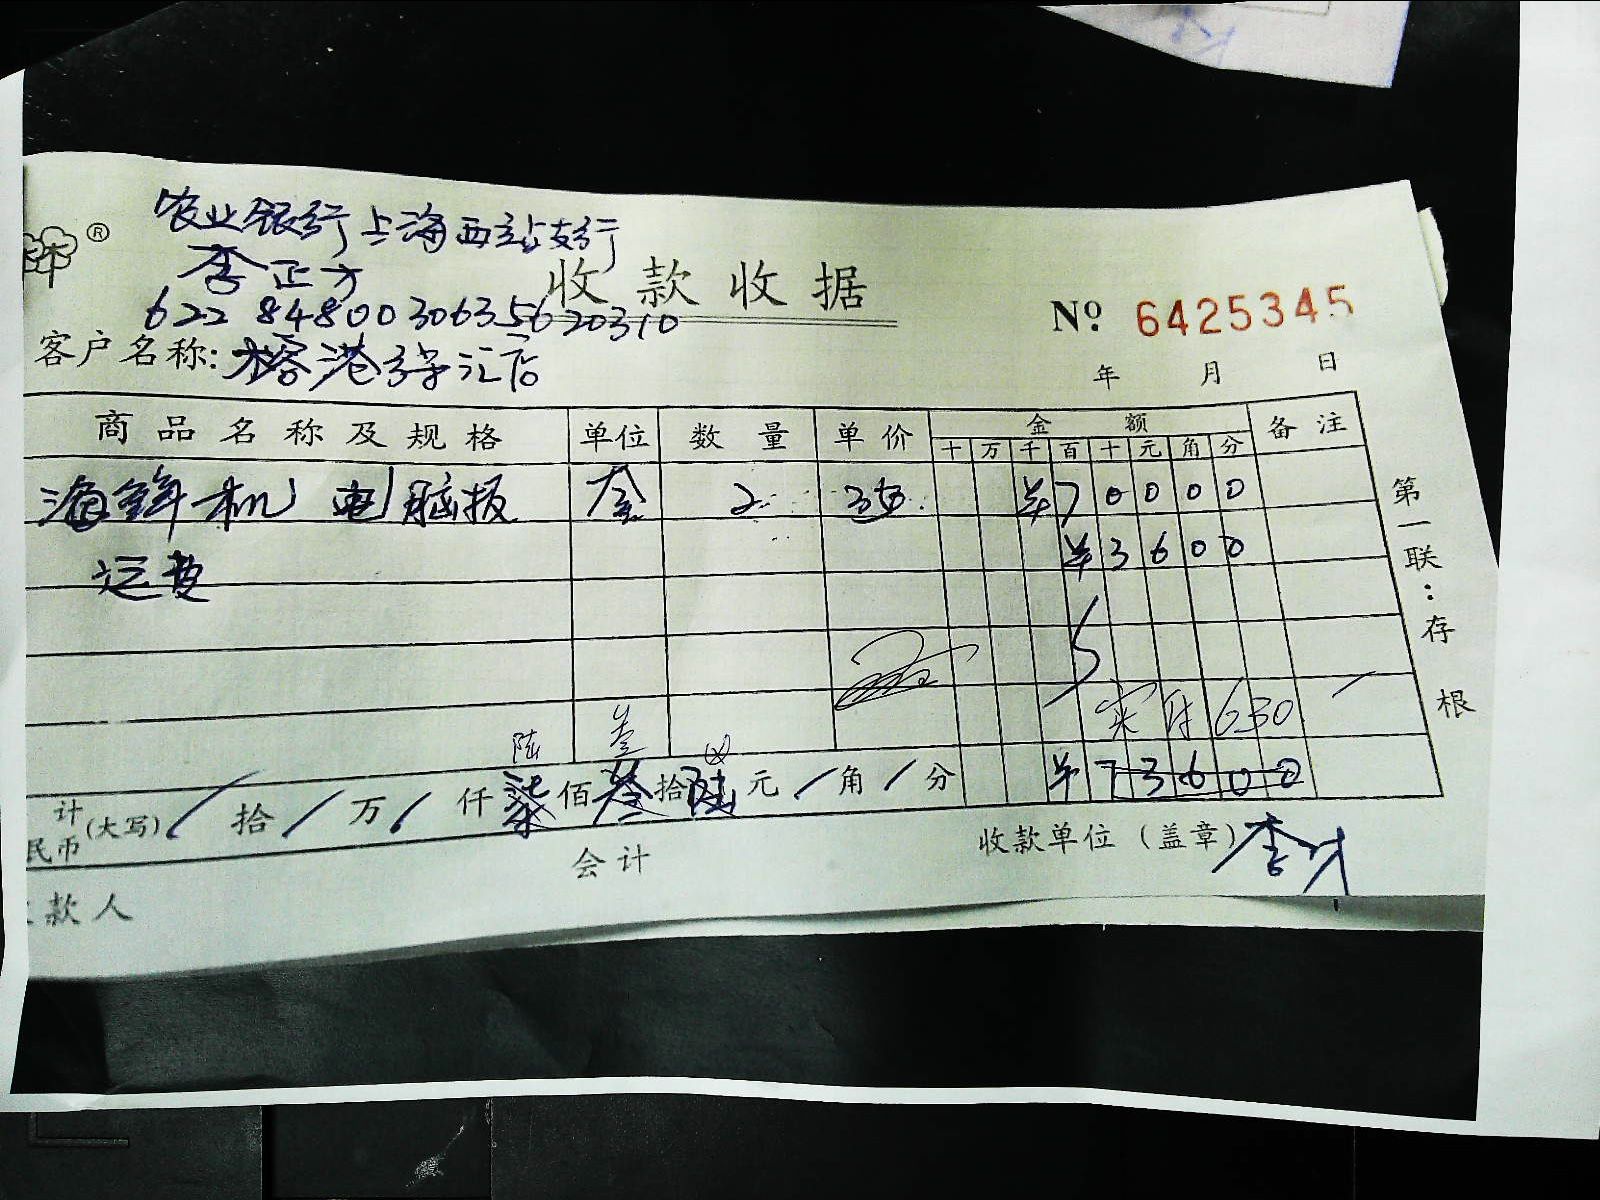 农业银行上海西站支行
®
李正方
收款收据
622 848003063562 0310
№ 6425345
客户名称:榕港
年 月 日
商品名称及规格 单位 数量 单价 金额 备注
十 万 千 百 十 元 角 分
海鲜机 电脑板 套 2 350 ¥70000
运费 ¥3600
实付 630
陆 叁
计 民币 (大写) / 拾 / 万 / 仟 柒 佰 叁 拾 陆 元 / 角 / 分 ¥73600
会计
收款单位(盖章) 李
款人
第一联:存根